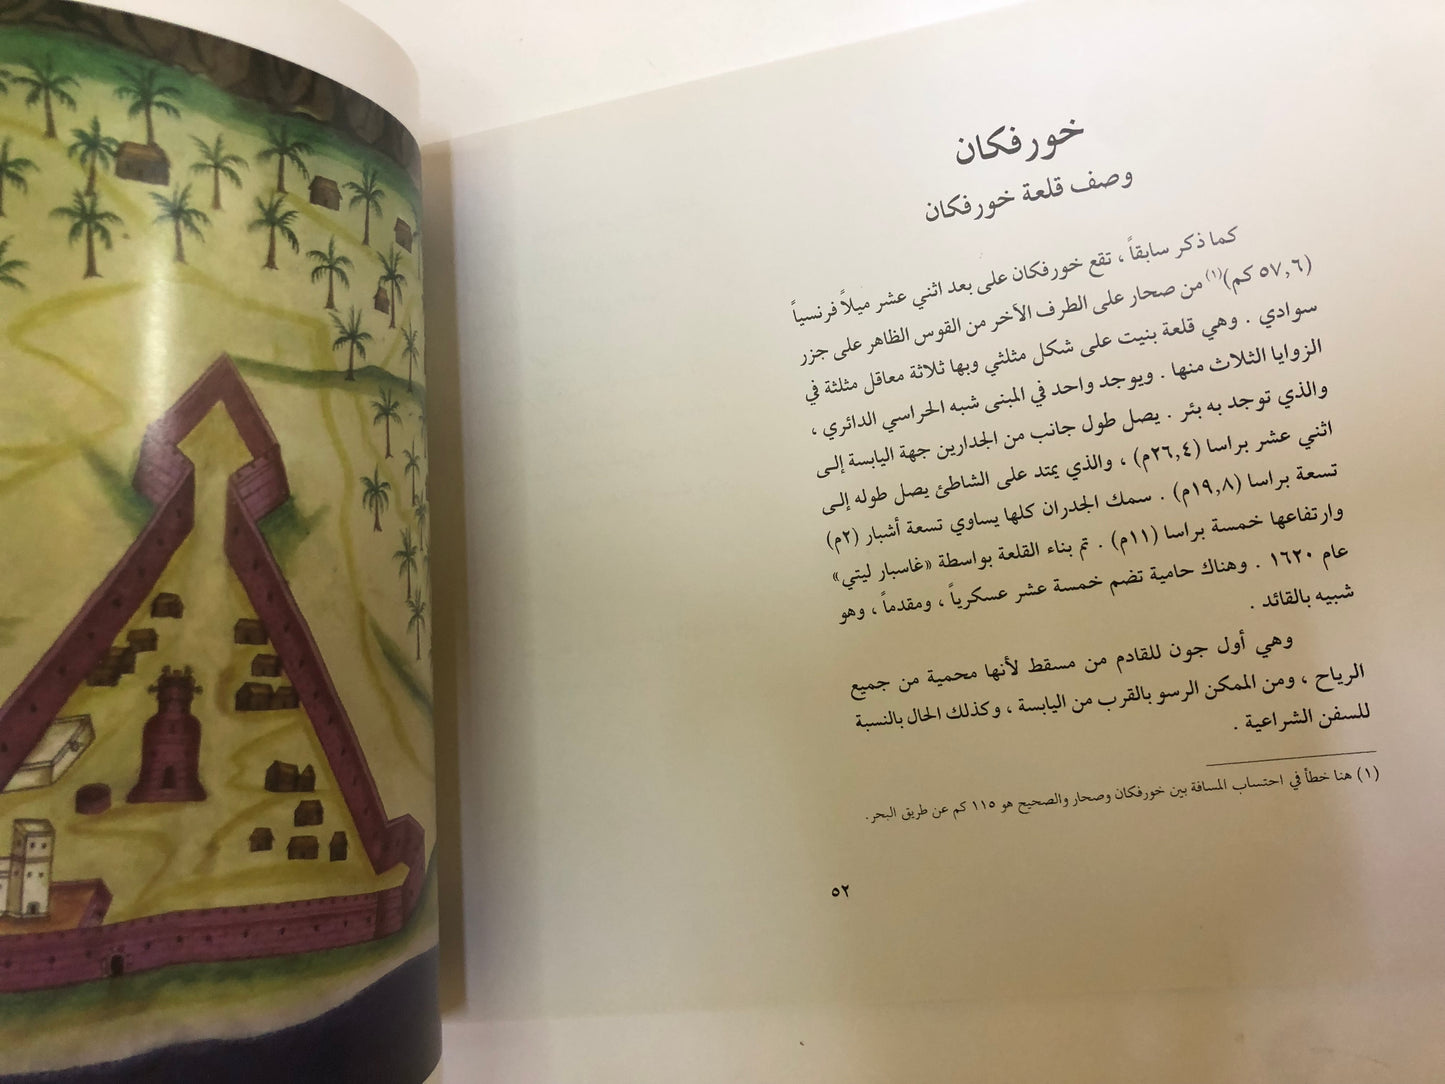 خورفكان
وصف قلعة خورفكان
كما ذكر سابقاً ، تقع خورفكان على بعد اثني عشر ميلاً فرنسياً
(٥٧,٦ كم)(١) من صحار على الطرف الأخر من القوس الظاهر على جزر
سوادي . وهي قلعة بنيت على شكل مثلثي وبها ثلاثة معاقل مثلثة في
الزوايا الثلاث منها . ويوجد واحد في المبنى شبه الحراسي الدائري ،
والذي توجد به بئر . يصل طول جانب من الجدارين جهة اليابسة إلى
اثني عشر براسا (٢٦,٤م) ، والذي يمتد على الشاطئ يصل طوله إلى
تسعة براسا (١٩,٨م) . سمك الجدران كلها يساوي تسعة أشبار (٢م)
وارتفاعها خمسة براسا (١١م) . تم بناء القلعة بواسطة «غاسبار ليتي»
عام ١٦٢٠ . وهناك حامية تضم خمسة عشر عسكرياً ، ومقدماً ، وهو
شبيه بالقائد .
وهي أول جون للقادم من مسقط لأنها محمية من جميع
الرياح ، ومن الممكن الرسو بالقرب من اليابسة ، وكذلك الحال بالنسبة
للسفن الشراعية .
(١) هنا خطأ في احتساب المسافة بين خورفكان وصحار والصحيح هو ١١٥ كم عن طريق البحر.
٥٢